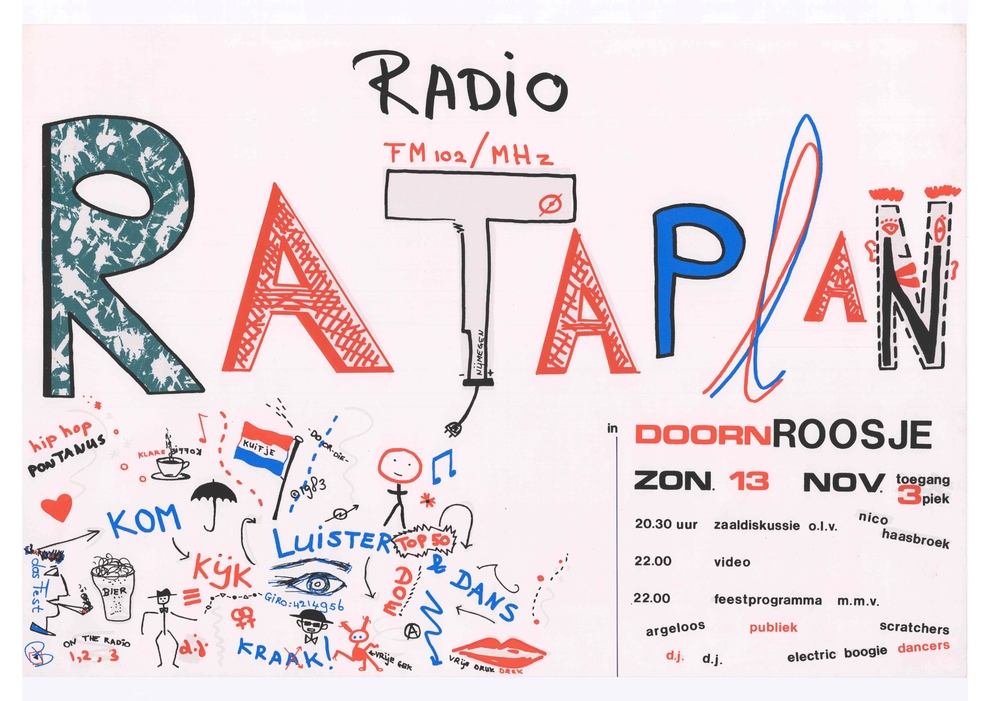 RADIO
FM 102/MHz
RATAPlAN
NIJMEGEN
hip hop
PONTANUS
KLARE
KOFFIE
KUITJE
-DO-OR-DIE-
©1983
KOM
LUISTER
TOP 50
& DANS
KIJK
DOE
das Fest
BIER
GIRO: 4214956
ON THE RADIO
1,2,3
d.j.
KRAAK!
VRIJE GEK
A
VRIJE DRUK DREK
in
DOORNROOSJE
ZON. 13 NOV.
toegang
3 piek
20.30 uur zaaldiskussie o.l.v. nico
haasbroek
22.00 video
22.00 feestprogramma m.m.v.
argeloos publiek scratchers
d.j. d.j. electric boogie dancers